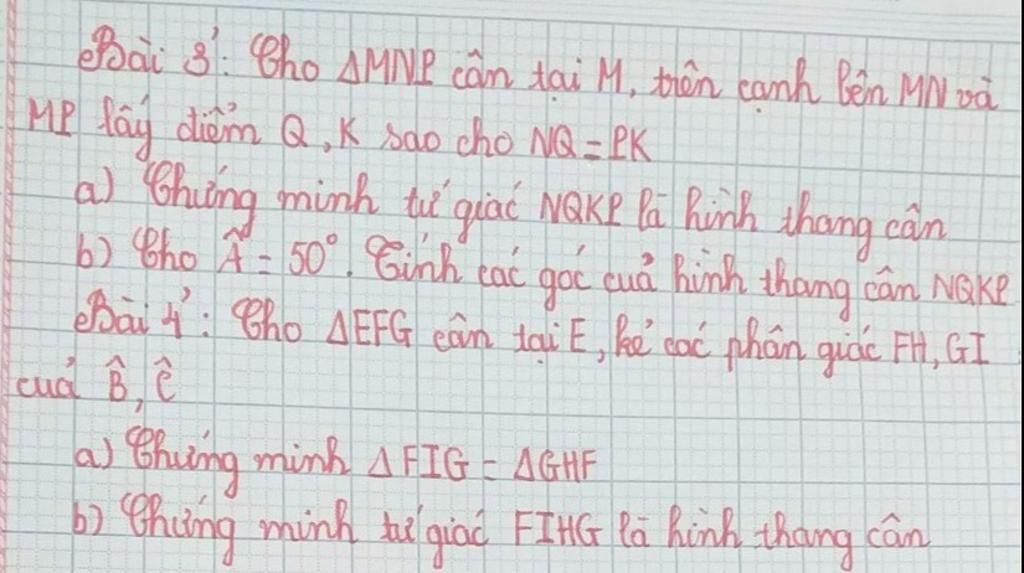 Bài 3: Cho ΔMNP cân tại M, trên cạnh bên MN và
MP lấy điểm Q, K sao cho NQ = PK
a) Chứng minh tứ giác NQKP là hình thang cân
b) Cho Â = 50°. Tính các góc của hình thang cân NQKP
Bài 4: Cho ΔEFG cân tại E, kẻ các phân giác FH, GI
của B̂, Ĉ
a) Chứng minh ΔFIG = ΔGHF
b) Chứng minh tứ giác FIHG là hình thang cân